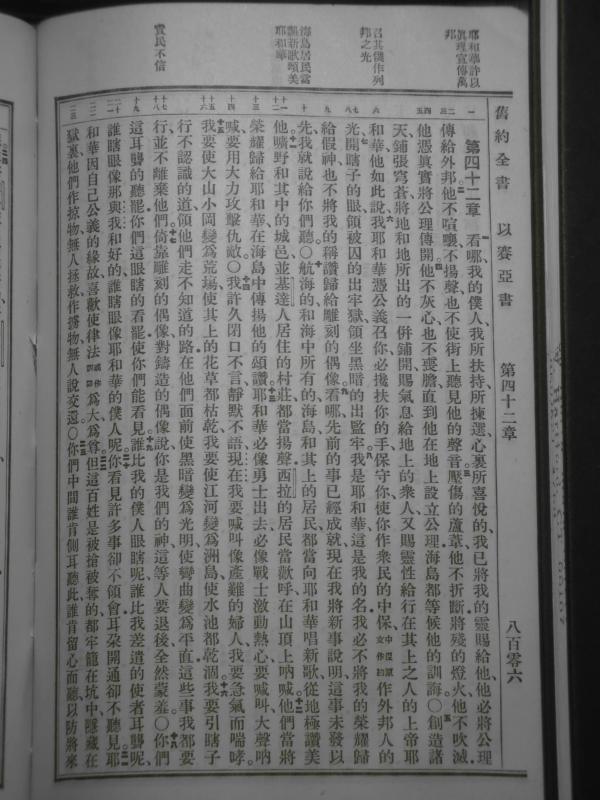 舊約全書
以賽亞書
第四十二章
八百零六
耶和華許以
眞理宣傳萬
邦
召其僕作列
邦之光
海島居民當
謳新歌頌美
耶和華
責民不信
第四十二章 看哪我的僕人我所扶持所揀選心裏所喜悅的我已將我的靈賜給他他必將公理
傳給外邦他不喧嚷不揚聲也不使街上聽見他的聲音壓傷的蘆葦他不折斷將殘的燈火他不吹滅
他憑眞實將公理傳開他不灰心也不喪膽直到他在地上設立公理海島都等候他的訓誨〇創造諸
天鋪張穹蒼將地和地所出的一併鋪開賜氣息給地上的衆人又賜靈性給行在其上之人的上帝耶
和華他如此說我耶和華憑公義召你必攙扶你的手保守你使你作衆民的中保中保原文作約作外邦人的
光開瞎子的眼領被囚的出牢獄領坐黑暗的出監牢我是耶和華這是我的名我必不將我的榮耀歸
給假神也不將我的稱讚歸給雕刻的偶像看哪先前的事已經成就現在我將新事說明這事未發以
先我就說給你們聽〇航海的和海中所有的海島和其上的居民都當向耶和華唱新歌從地極讚美
他曠野和其中的城邑並基達人居住的村莊都當揚聲西拉的居民當歡呼在山頂上吶喊他們當將
榮耀歸給耶和華在海島中傳揚他的頌讚耶和華必像勇士出去必像戰士激動熱心要喊叫大聲吶
喊要用大力攻擊仇敵〇我許久閉口不言靜默不語現在我要喊叫像產難的婦人我要急氣而喘哮
我要使大山小岡變爲荒場使其上的花草都枯乾我要使江河變爲洲島使水池都乾涸我要引瞎子
行不認識的道領他們走不知道的路在他們面前使黑暗變爲光明使彎曲變爲平直這些事我都要
行並不離棄他們倚靠雕刻的偶像對鑄造的偶像說你是我們的神這等人要退後全然蒙羞〇你們
這耳聾的聽罷你們這眼瞎的看罷使你們能看見誰比我的僕人眼瞎呢誰比我差遣的使者耳聾呢
誰瞎眼像那與我和好的誰瞎眼像耶和華的僕人呢你看見許多事卻不領會耳朵開通卻不聽見耶
和華因自己公義的緣故喜歡使律法或作訓誨爲大爲尊但這百姓是被搶被奪的都牢籠在坑中隱藏在
獄裏他們作掠物無人拯救作擄物無人說交還〇你們中間誰肯側耳聽此誰肯留心而聽以防將來